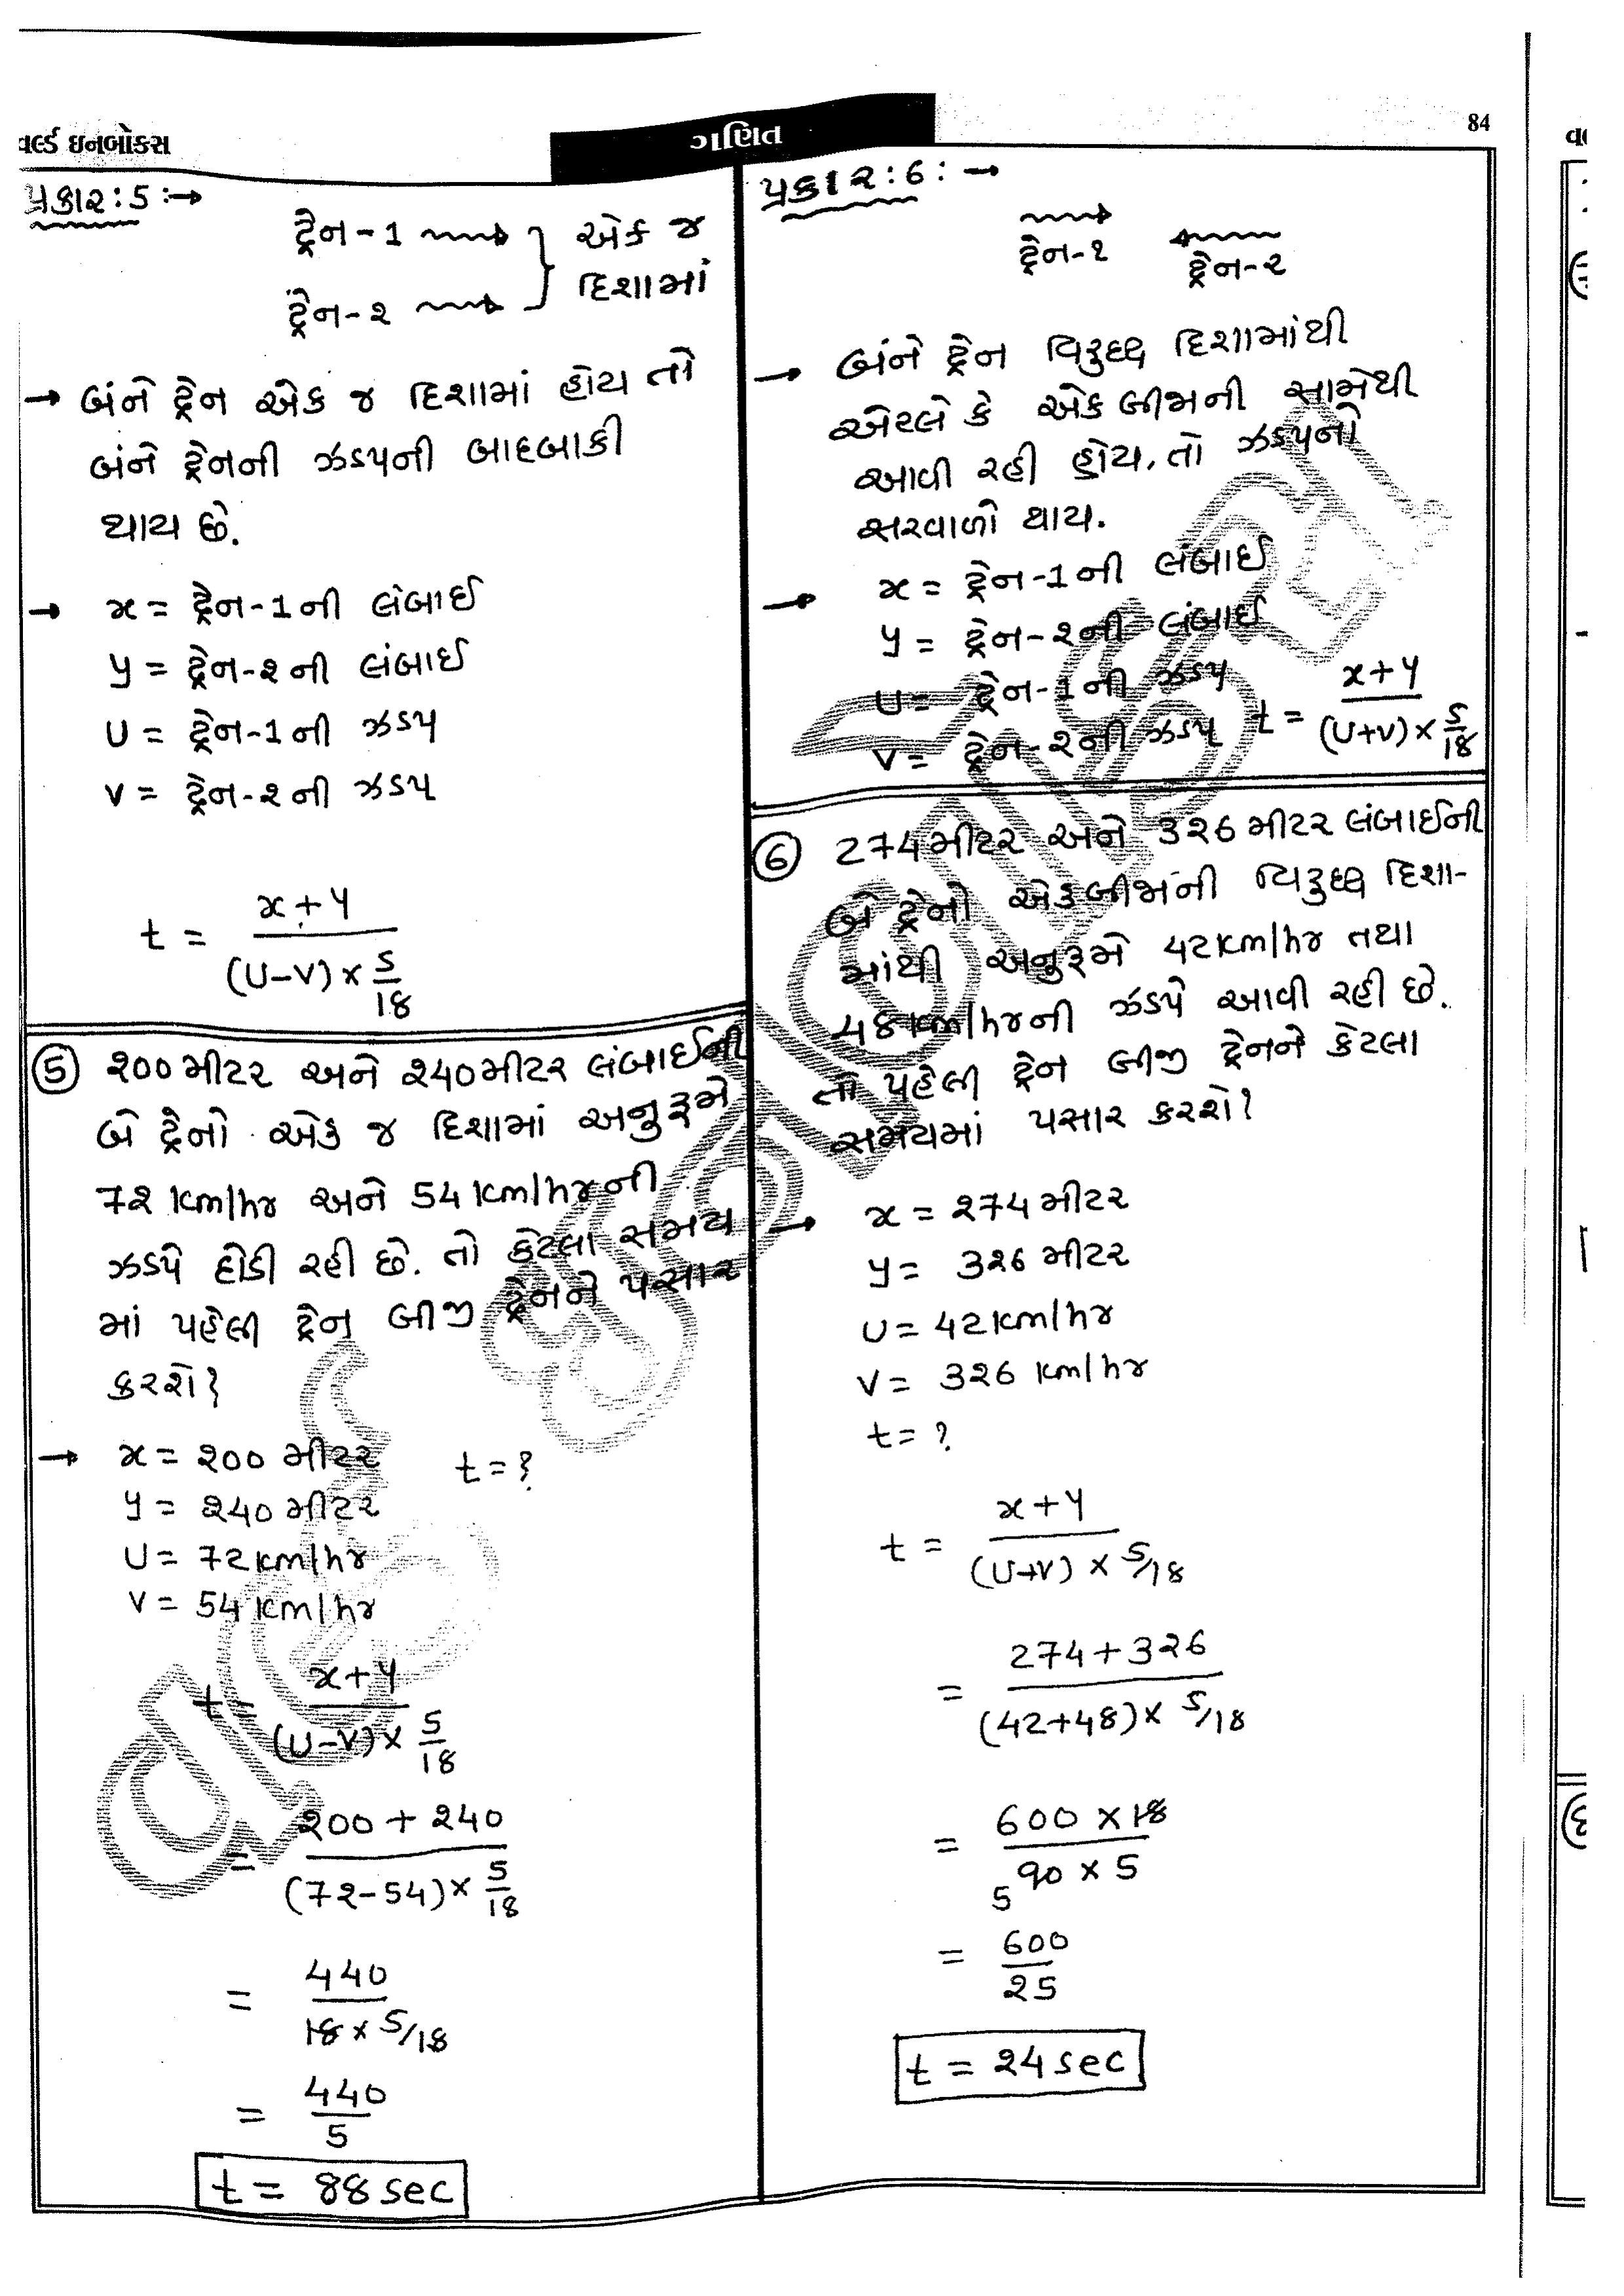 વર્લ્ડ ઇનબોક્સ
ગણિત
84
પ્રકાર : 5 :→
ટ્રેન-1 → } એક જ
ટ્રેન-૨ → દિશામાં
→ બંને ટ્રેન એક જ દિશામાં હોય તો
બંને ટ્રેનની ઝડપની બાદબાકી
થાય છે.
→ x = ટ્રેન-1ની લંબાઈ
y = ટ્રેન-૨ની લંબાઈ
U = ટ્રેન-1ની ઝડપ
V = ટ્રેન-૨ની ઝડપ
t = x+y / (U-V) × 5/18
⑤ ૨00 મીટર અને ૨40 મીટર લંબાઈની
બે ટ્રેનો એક જ દિશામાં અનુક્રમે
7૨ km/hr અને 54 km/hrની
ઝડપે દોડી રહી છે. તો કેટલા સમય
માં પહેલી ટ્રેન બીજી ટ્રેનને પસાર
કરશે?
→ x = ૨00 મીટર t = ?
y = ૨40 મીટર
U = 72 km/hr
V = 54 km/hr
t = x+y / (U-V) × 5/18
= ૨00 + ૨40 / (7૨-54) × 5/18
= 440 / 18 × 5/18
= 440 / 5
t = 88 sec
પ્રકાર : 6 : →
→ ←
ટ્રેન-૧ ટ્રેન-૨
→ બંને ટ્રેન વિરુધ્ધ દિશામાંથી
એટલે કે એકબીજાની સામેથી
આવી રહી હોય, તો ઝડપનો
સરવાળો થાય.
→ x = ટ્રેન-1ની લંબાઈ
y = ટ્રેન-૨ની લંબાઈ
U = ટ્રેન-1ની ઝડપ
V = ટ્રેન-૨ની ઝડપ t = x+y / (U+V) × 5/18
⑥ 274 મીટર અને 3૨6 મીટર લંબાઈની
બે ટ્રેનો એકબીજાની વિરુધ્ધ દિશા-
માંથી અનુક્રમે 42 km/hr તથા
48 km/hrની ઝડપે આવી રહી છે.
તો પહેલી ટ્રેન બીજી ટ્રેનને કેટલા
સમયમાં પસાર કરશે?
→ x = ૨74 મીટર
y = 3૨6 મીટર
U = 42 km/hr
V = 3૨6 km/hr
t = ?
t = x+y / (U+V) × 5/18
= 274+3૨6 / (42+48) × 5/18
= 600 × 18 / 90 × 5
5
= 600 / ૨5
t = ૨4 sec